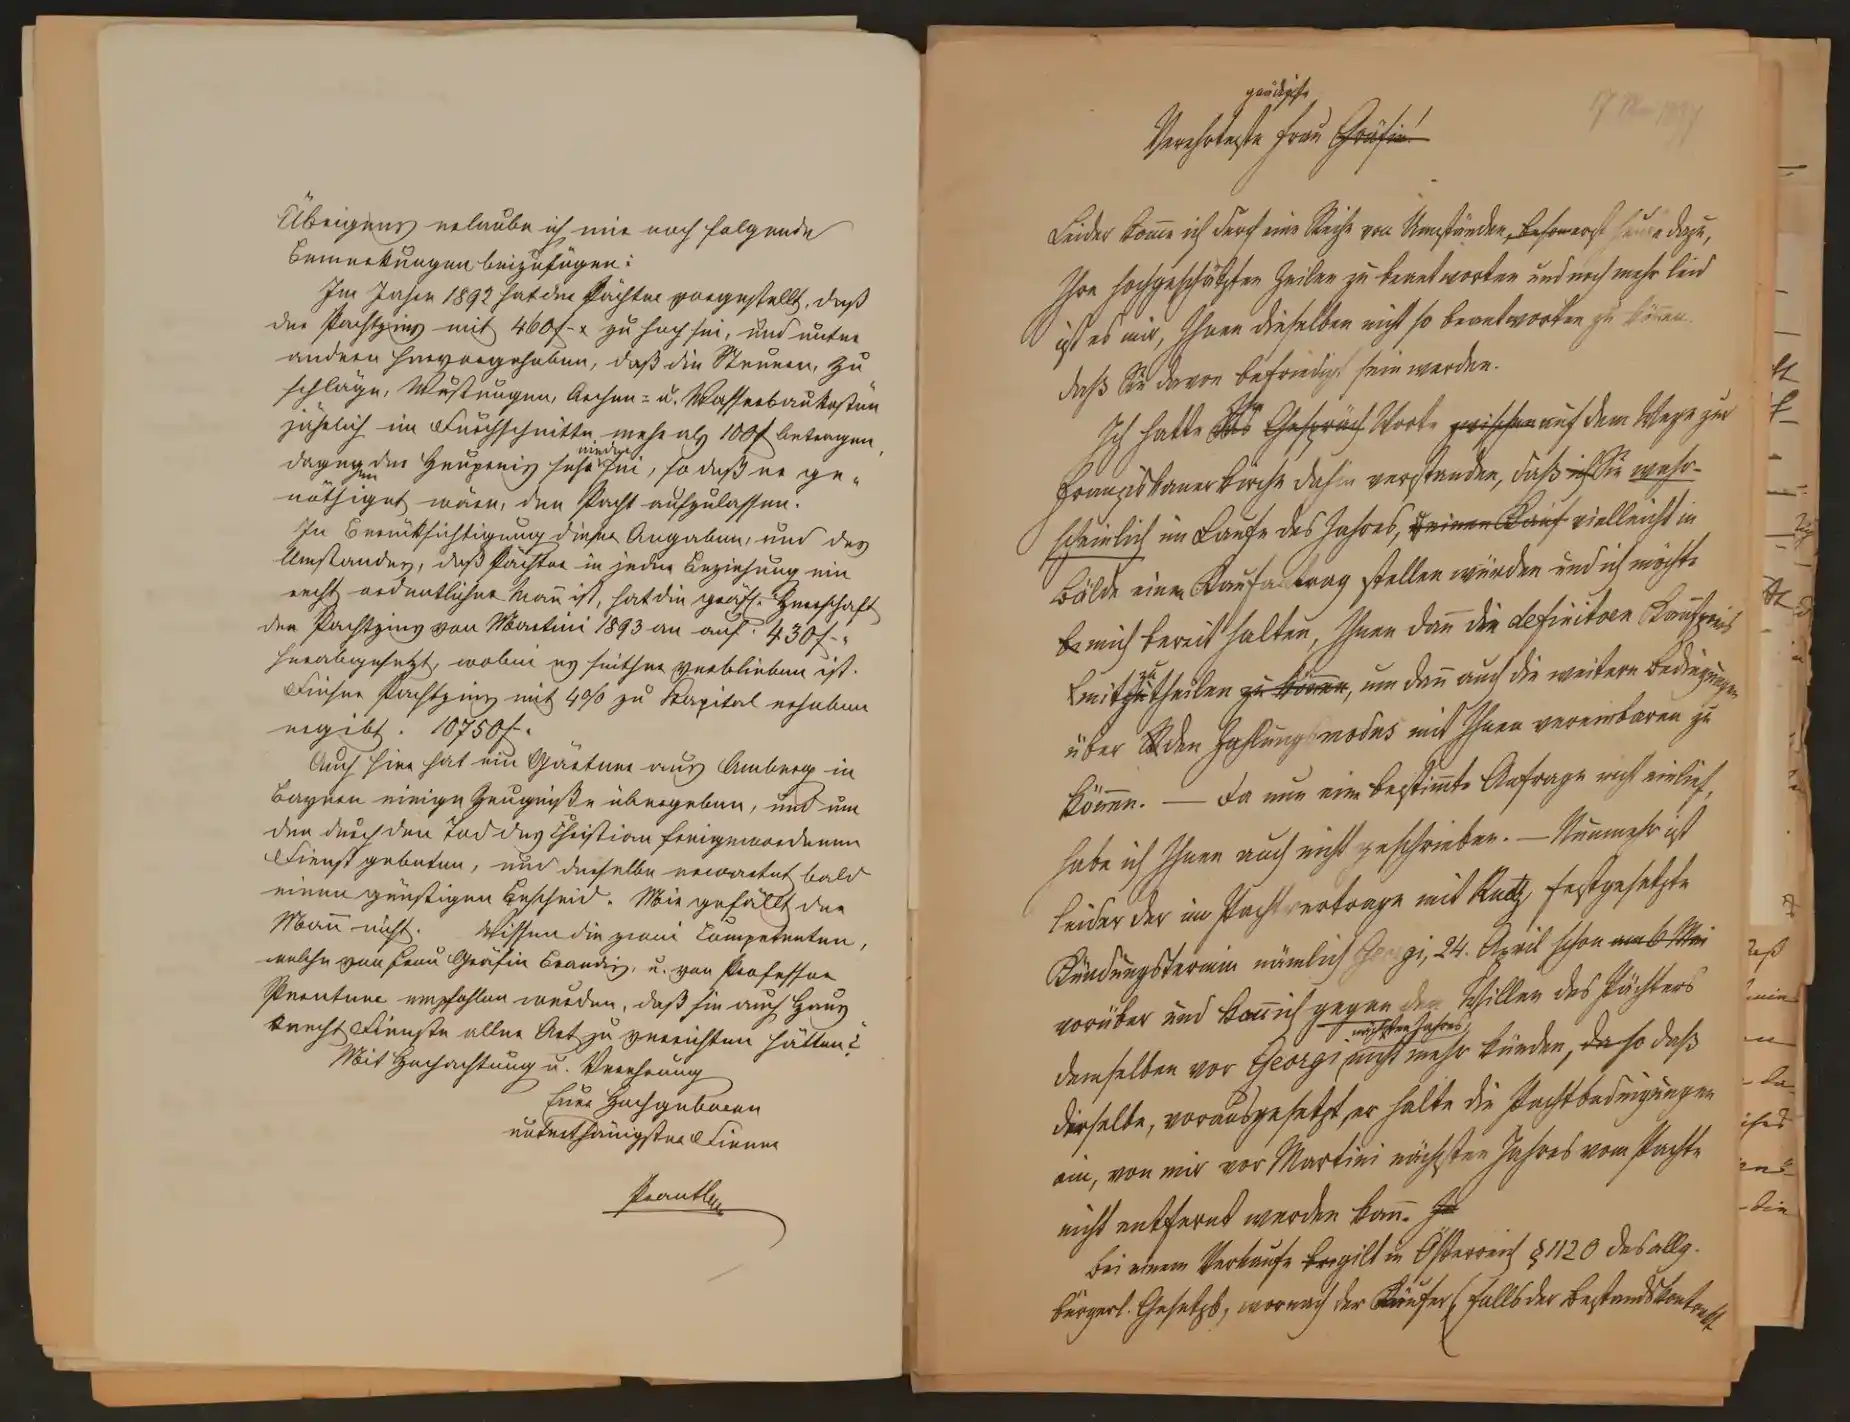 Übrigens erlaube ich mir noch folgende
Bemerkungen beizufügen:
Im Jahre 1892 hat der Pächter vorgestellt, daß
der Pachtzins mit 460f-x zu hoch sei, und unter
andern hervorgehoben, daß die Steuern, Zu
schläge, Wustungen, Archen= u. Wasserbaukosten
jährlich im Durchschnitte mehr als 100f betragen,
dagegen der Heupreis sehr nieder sei, so daß er ge-
nöthiget wäre, den Pacht aufzulassen.
In Berücksichtigung dieser Angaben, und des
Umstandes, daß Pächter in jeder Beziehung ein
recht ordentlicher Mann ist, hat die gräfl. Herrschaft
den Pachtzins von Martini 1893 an auf 430f-
herabgesetzt, wobei es seither verblieben ist.
Dieser Pachtzins mit 4% zu Kapital erhoben
ergibt. 10750f-.
Auch hier hat ein Gärtner aus Amberg in
Bayern einige Zeugniße übergeben, und um
den durch den Tod des Christian freigewordenen
Dienst gebeten, und derselbe erwartet bald
einen günstigen Bescheid. Mir gefällt der
Mann nicht. Wissen die zwei Competenten,
welche von Frau Gräfin Brandis, u. von Professor
Prentner empfohlen wurden, daß sie auch Haus
knecht Dienste aller Art zu verrichten hätten?
Mit Hochachtung u. Verehrung
Euer Hochgeboren
unterthänigster Diener
Prantl
17 Mai
gnädigste
Verehrteste Frau Gräfin!
Leider komme ich durch eine Reihe von Umständen, erst heute dazu,
Ihre hochgeschätzten Zeilen zu beantworten und noch mehr leid
ist es mir, Ihnen dieselben nicht so beantworten zu können.
daß Sie davon befriedigt sein werden.
Ich hatte Gespräch Worte zwischen auf dem Wege zur
Franziskanerkirche dahin verstanden, daß ich Sie wahr-
scheinlich im Laufe des Jahres, einen Kauf vielleicht in
Bälde einen Kaufantrag stellen würden und ich möchte
mich bereit halten, Ihnen dann die definitiven Kaufpreis
mitzutheilen zu können, um dann auch die weitern Bedingungen
über den Zahlungsmodus mit Ihnen vereinbaren zu
können. — Da nun eine bestimmte Anfrage nicht einlief,
habe ich Ihnen auch nicht geschrieben. — Nunmehr ist
leider der im Pachtvertrage mit festgesetzte
Kündungstermin nämlich Georgi, 24. April schon am 6 Mai
vorüber und kann ich gegen den Willen des Pächters
nächsten Jahres
demselben vor Georgi nicht mehr künden, da so daß
derselbe, vorausgesetzt er halte die Pachtbedingungen
ein, von mir vor Martini nächsten Jahres vom Pachte
nicht entfernt werden kann.
Bei einem Verkaufe gilt in Österreich § 1120 des allg.
bürgerl. Gesetzb, wornach der Käufer (falls der Bestandskontrakt